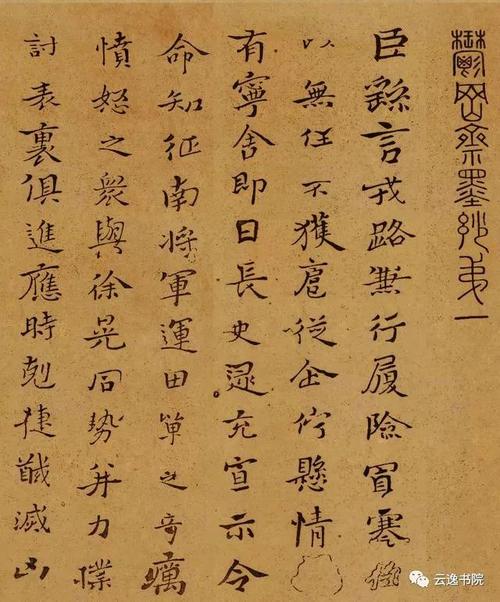 鬱岡齋墨妙第一
臣繇言戎路兼行履險冒寒
以無任不獲扈從企佇懸情
有寧舍即日長史逯充宣示令
命知征南將軍運田單之奇厲
憤怒之衆與徐晃同勢并力撲
討表裏俱進應時剋捷馘滅凶
云逸书院